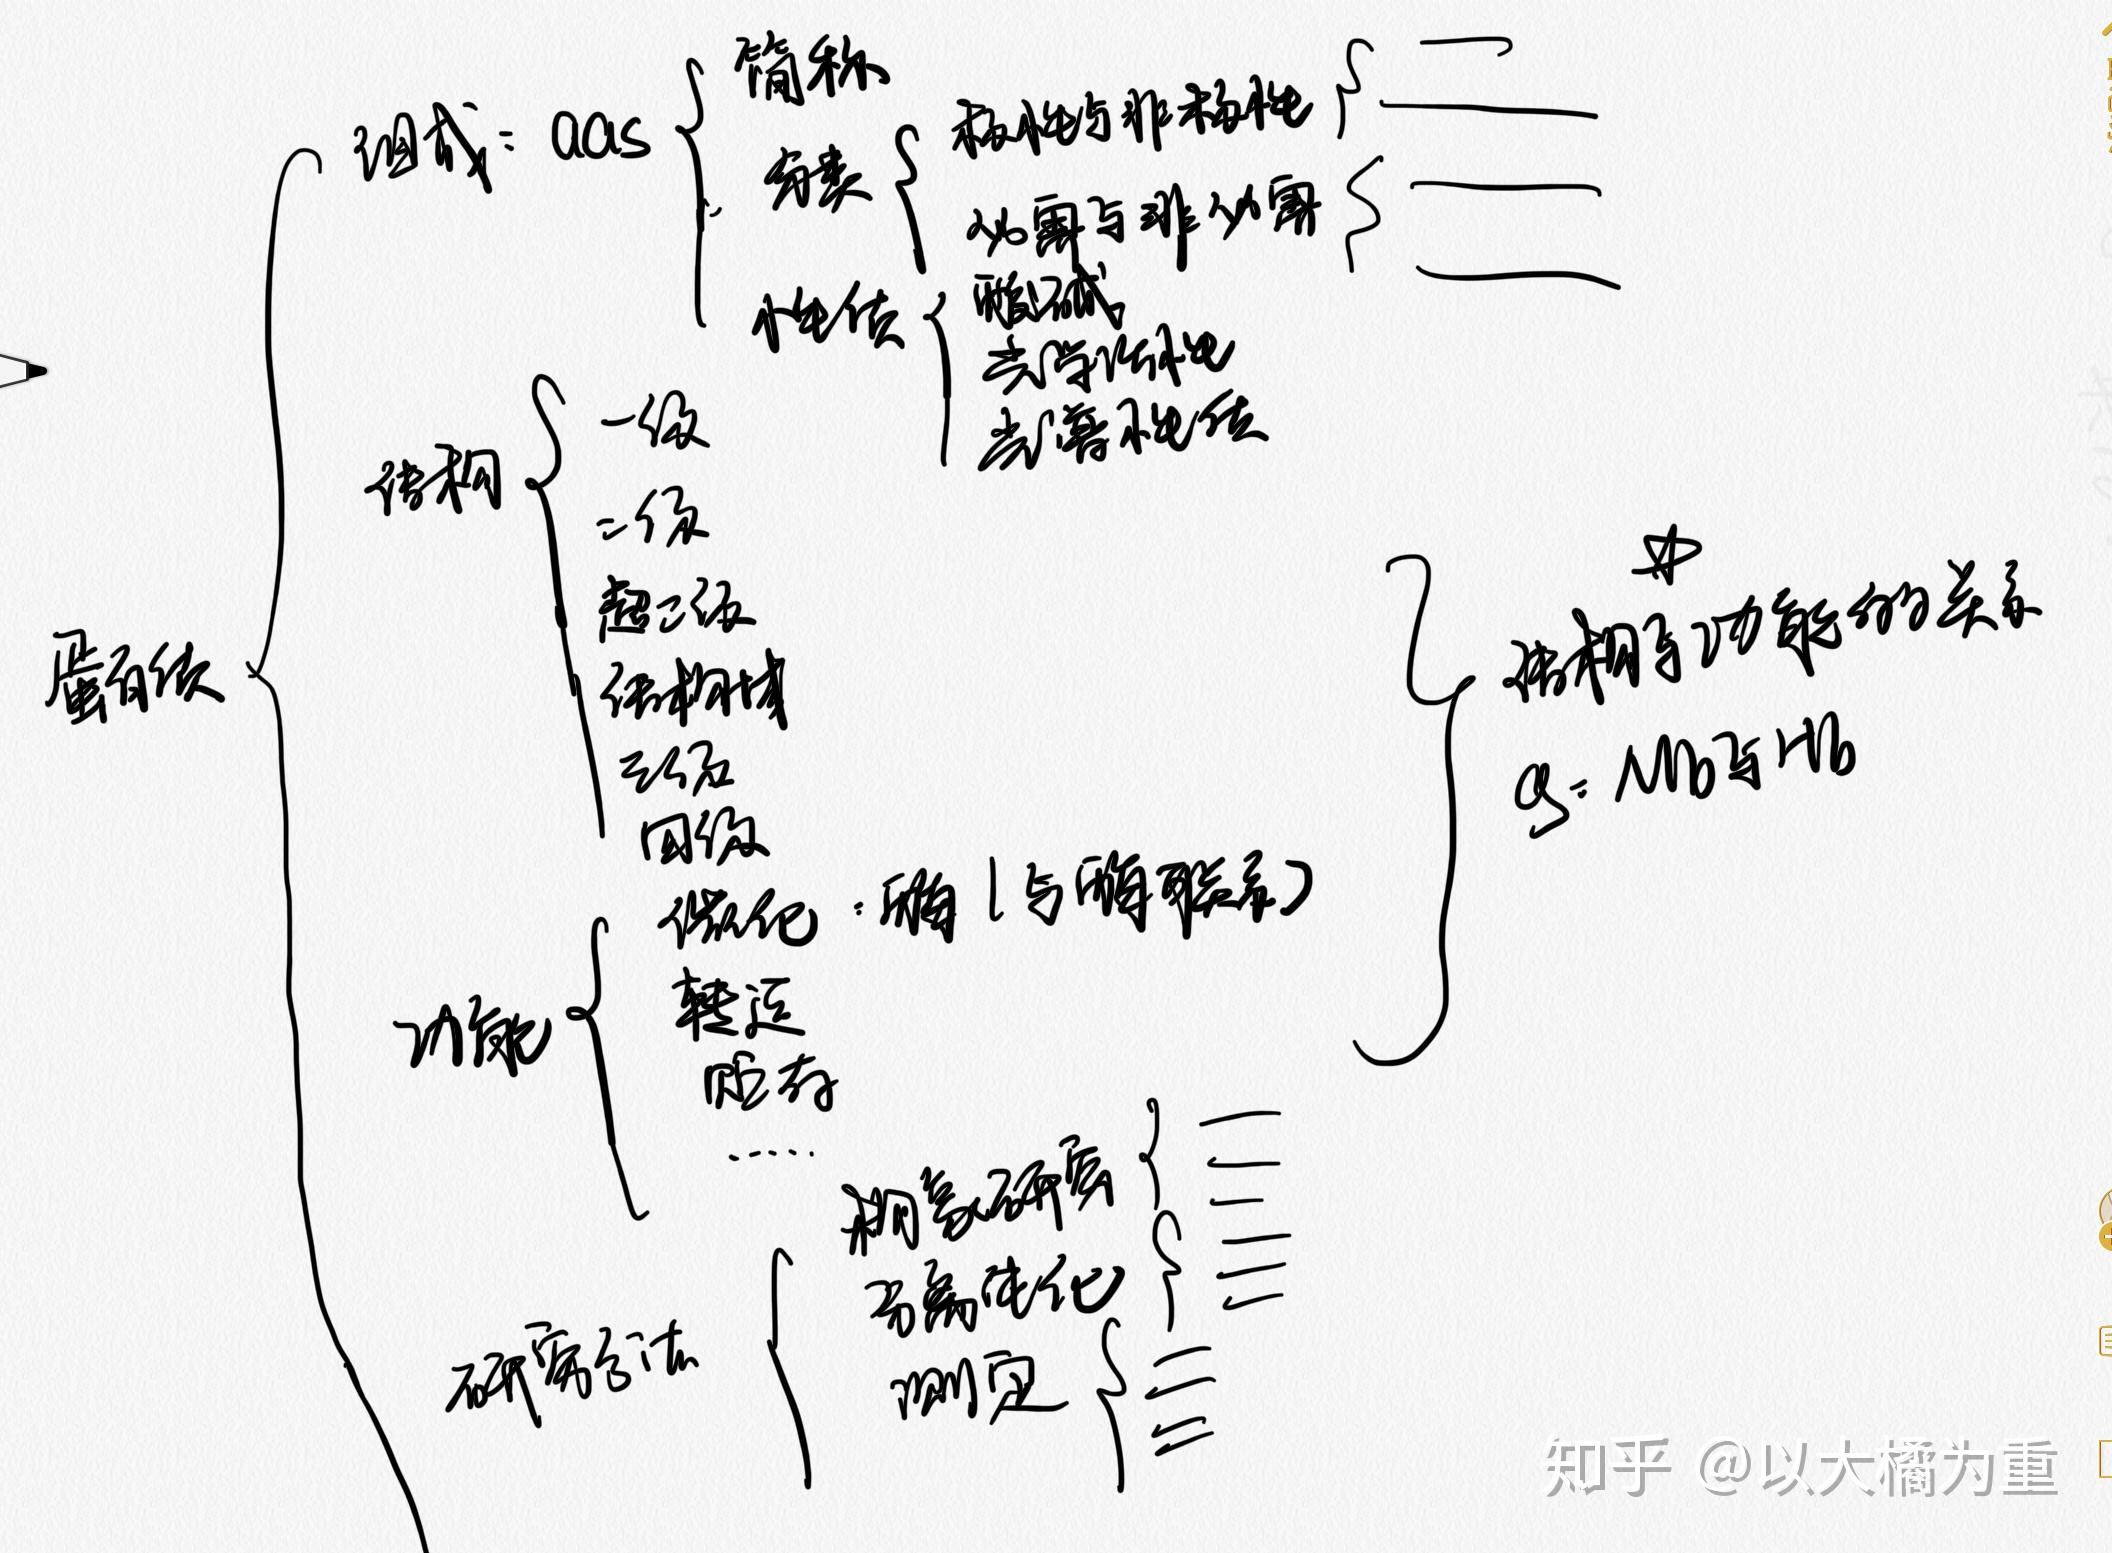 蛋白质
组成: aas
简称
分类
极性与非极性
必需与非必需
性质
酸碱
光学活性
光谱性质
结构
一级
二级
超二级
结构域
三级
四级
功能
催化: 酶 (与酶联系)
转运
贮存
......
结构与功能的关系
eg: Mb与Hb
研究方法
分离纯化
测定
知乎 @以大橘为重